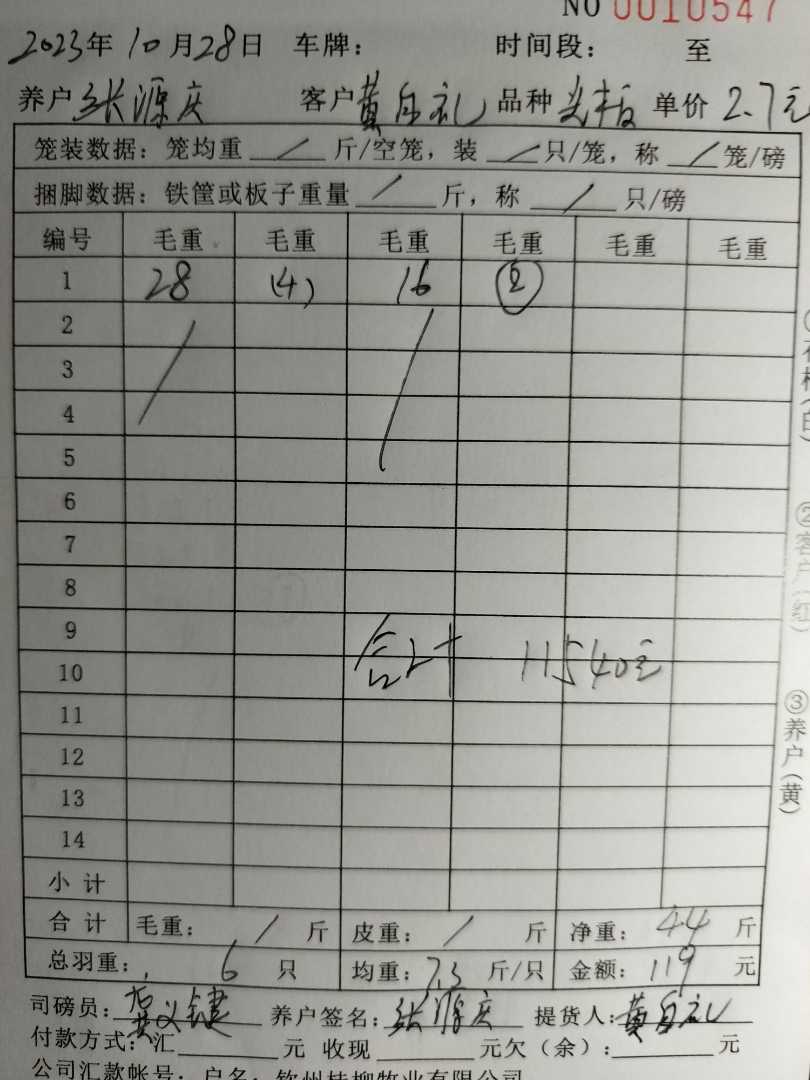 NO 0010547
2023年 10月28日 车牌： 时间段： 至
养户 张源庆 客户 黄自礼 品种 单价 2.7元
笼装数据：笼均重 / 斤/空笼，装 / 只/笼，称 / 笼/磅
捆脚数据：铁筐或板子重量 / 斤，称 / 只/磅
编号 毛重 毛重 毛重 毛重 毛重 毛重
1 28 (4) 16 ②
2
3
4
5
6
7
8
9
合计 11540元
10
11
12
13
14
小计
合计 毛重： / 斤 皮重： / 斤 净重： 44 斤
总羽重： 6 只 均重：7.3 斤/只 金额：119 元
司磅员： 养户签名：张源庆 提货人：黄自礼
付款方式：汇 元 收现 元欠（余）： 元
公司汇款帐号：户名：钦州桂柳牧业有限公司
②客户（红）
③养户（黄）